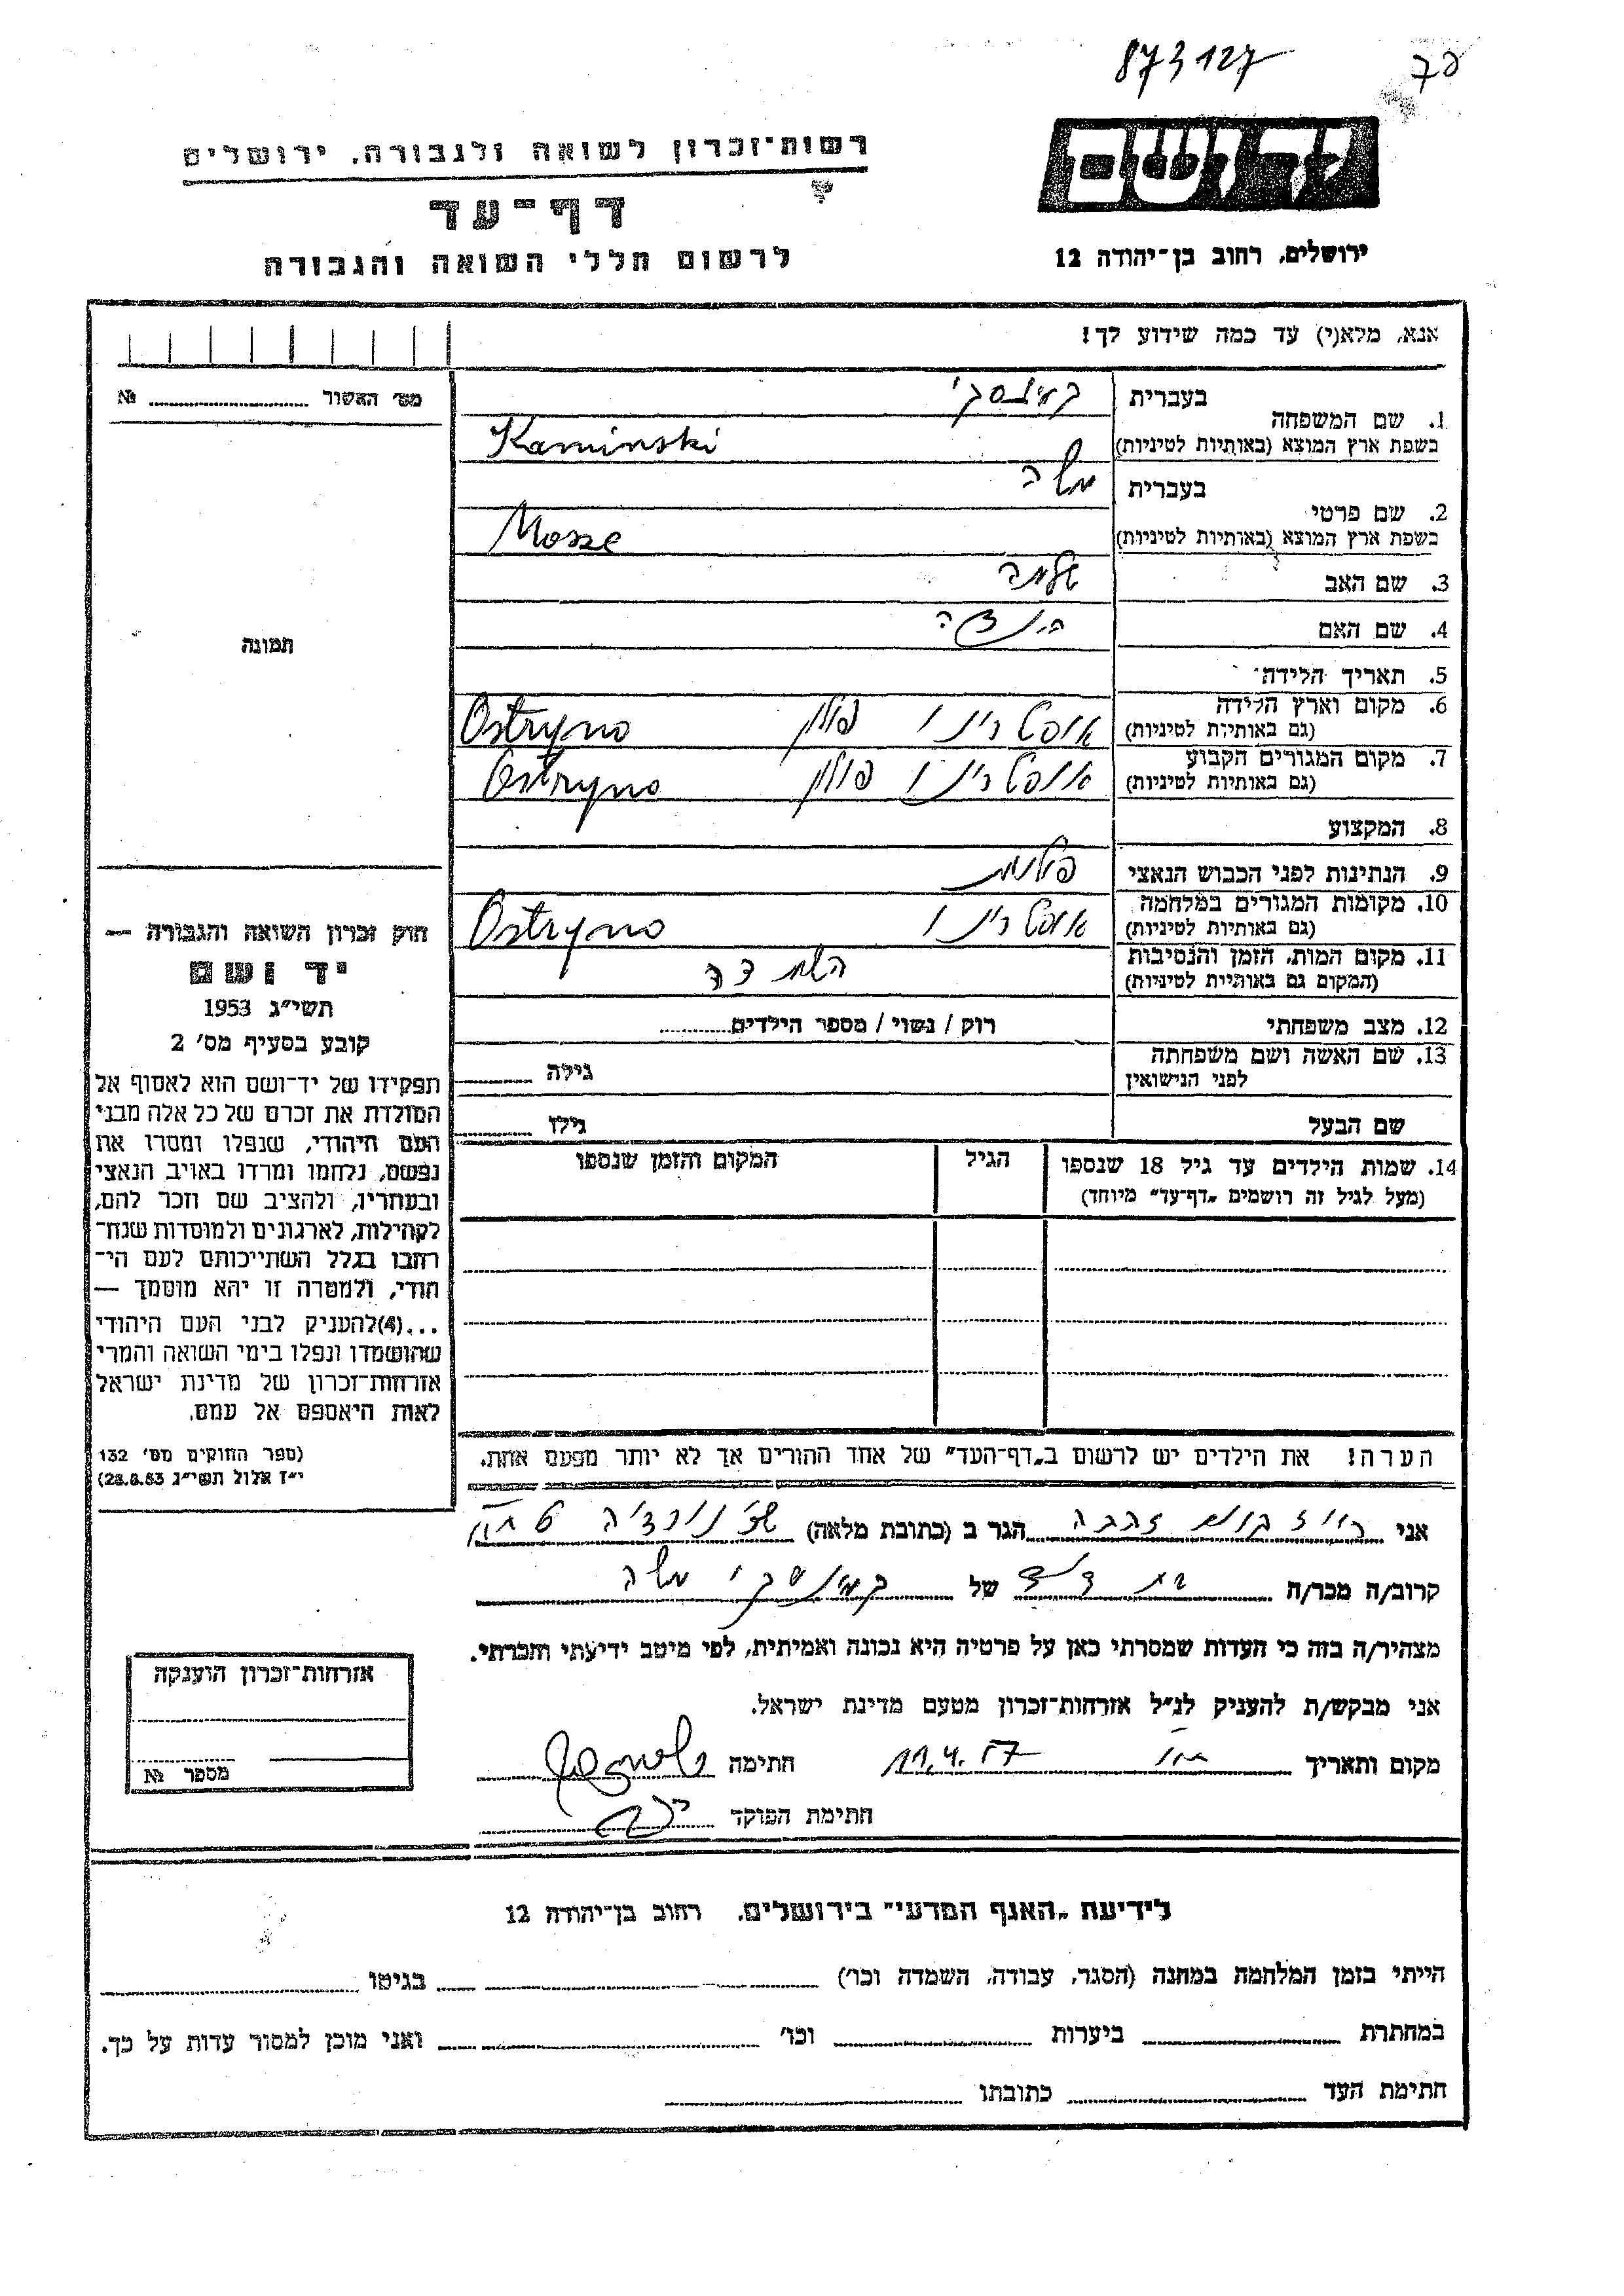 873127
יד ושם
רשות־זכרון לשואה ולגבורה, ירושלים
דף־עד
לרשום חללי השואה והגבורה
ירושלים, רחוב בן־יהודה 12
אנא, מלא(י) עד כמה שידוע לך!
מס׳ האשור № 
1. שם המשפחה בעברית קמינסקי
בשפת ארץ המוצא (באותיות לטיניות) Kaminski
2. שם פרטי בעברית משה
בשפת ארץ המוצא (באותיות לטיניות) Mosze
3. שם האב שלמה
4. שם האם
5. תאריך הלידה
6. מקום וארץ הלידה (גם באותיות לטיניות) אוסטרינו פולין Ostryno
7. מקום המגורים הקבוע (גם באותיות לטיניות) אוסטרינו פולין Ostryno
8. המקצוע
9. הנתינות לפני הכבוש הנאצי פולנית
10. מקומות המגורים במלחמה (גם באותיות לטיניות) אוסטרינו Ostryno
11. מקום המות, הזמן והנסיבות (המקום גם באותיות לטיניות) השמדה
12. מצב משפחתי רוק / נשוי / מספר הילדים
13. שם האשה ושם משפחתה לפני הנישואין גילה
שם הבעל גילו
14. שמות הילדים עד גיל 18 שנספו הגיל המקום והזמן שנספו
(מעל לגיל זה רושמים „דף־עד״ מיוחד)
הערה! את הילדים יש לרשום ב„דף־העד״ של אחד ההורים אך לא יותר מפעם אחת.
תמונה
חוק זכרון השואה והגבורה —
יד ושם
תשי״ג 1953
קובע בסעיף מס׳ 2
תפקידו של יד־ושם הוא לאסוף אל
המולדת את זכרם של כל אלה מבני
העם היהודי, שנפלו ומסרו את
נפשם, נלחמו ומרדו באויב הנאצי
ובעוזריו, ולהציב שם וזכר להם,
לקהילות, לארגונים ולמוסדות שנח־
רבו בגלל השתייכותם לעם הי־
הודי, ולמטרה זו יהא מוסמך —
...(4) להעניק לבני העם היהודי
שהושמדו ונפלו בימי השואה והמרי
אזרחות־זכרון של מדינת ישראל
לאות היאספם אל עמם.
(ספר החוקים מס׳ 132
י״ז אלול תשי״ג 28.8.53)
אני זהבה הגר ב (כתובת מלאה)
קרוב/ה מכר/ה בת דוד של קמינסקי משה
מצהיר/ה בזה כי העדות שמסרתי כאן על פרטיה היא נכונה ואמיתית, לפי מיטב ידיעתי והכרתי.
אני מבקש/ת להעניק לנ״ל אזרחות־זכרון מטעם מדינת ישראל.
מקום ותאריך 11.4.57 חתימה
חתימת הפוקד
אזרחות־זכרון הוענקה
מספר №
לידיעת „האגף המדעי״ בירושלים, רחוב בן־יהודה 12
הייתי בזמן המלחמה במחנה (הסגר, עבודה, השמדה וכו׳) בגיטו
במחתרת ביערות וכו׳ ואני מוכן למסור עדות על כך.
חתימת העד כתובתו